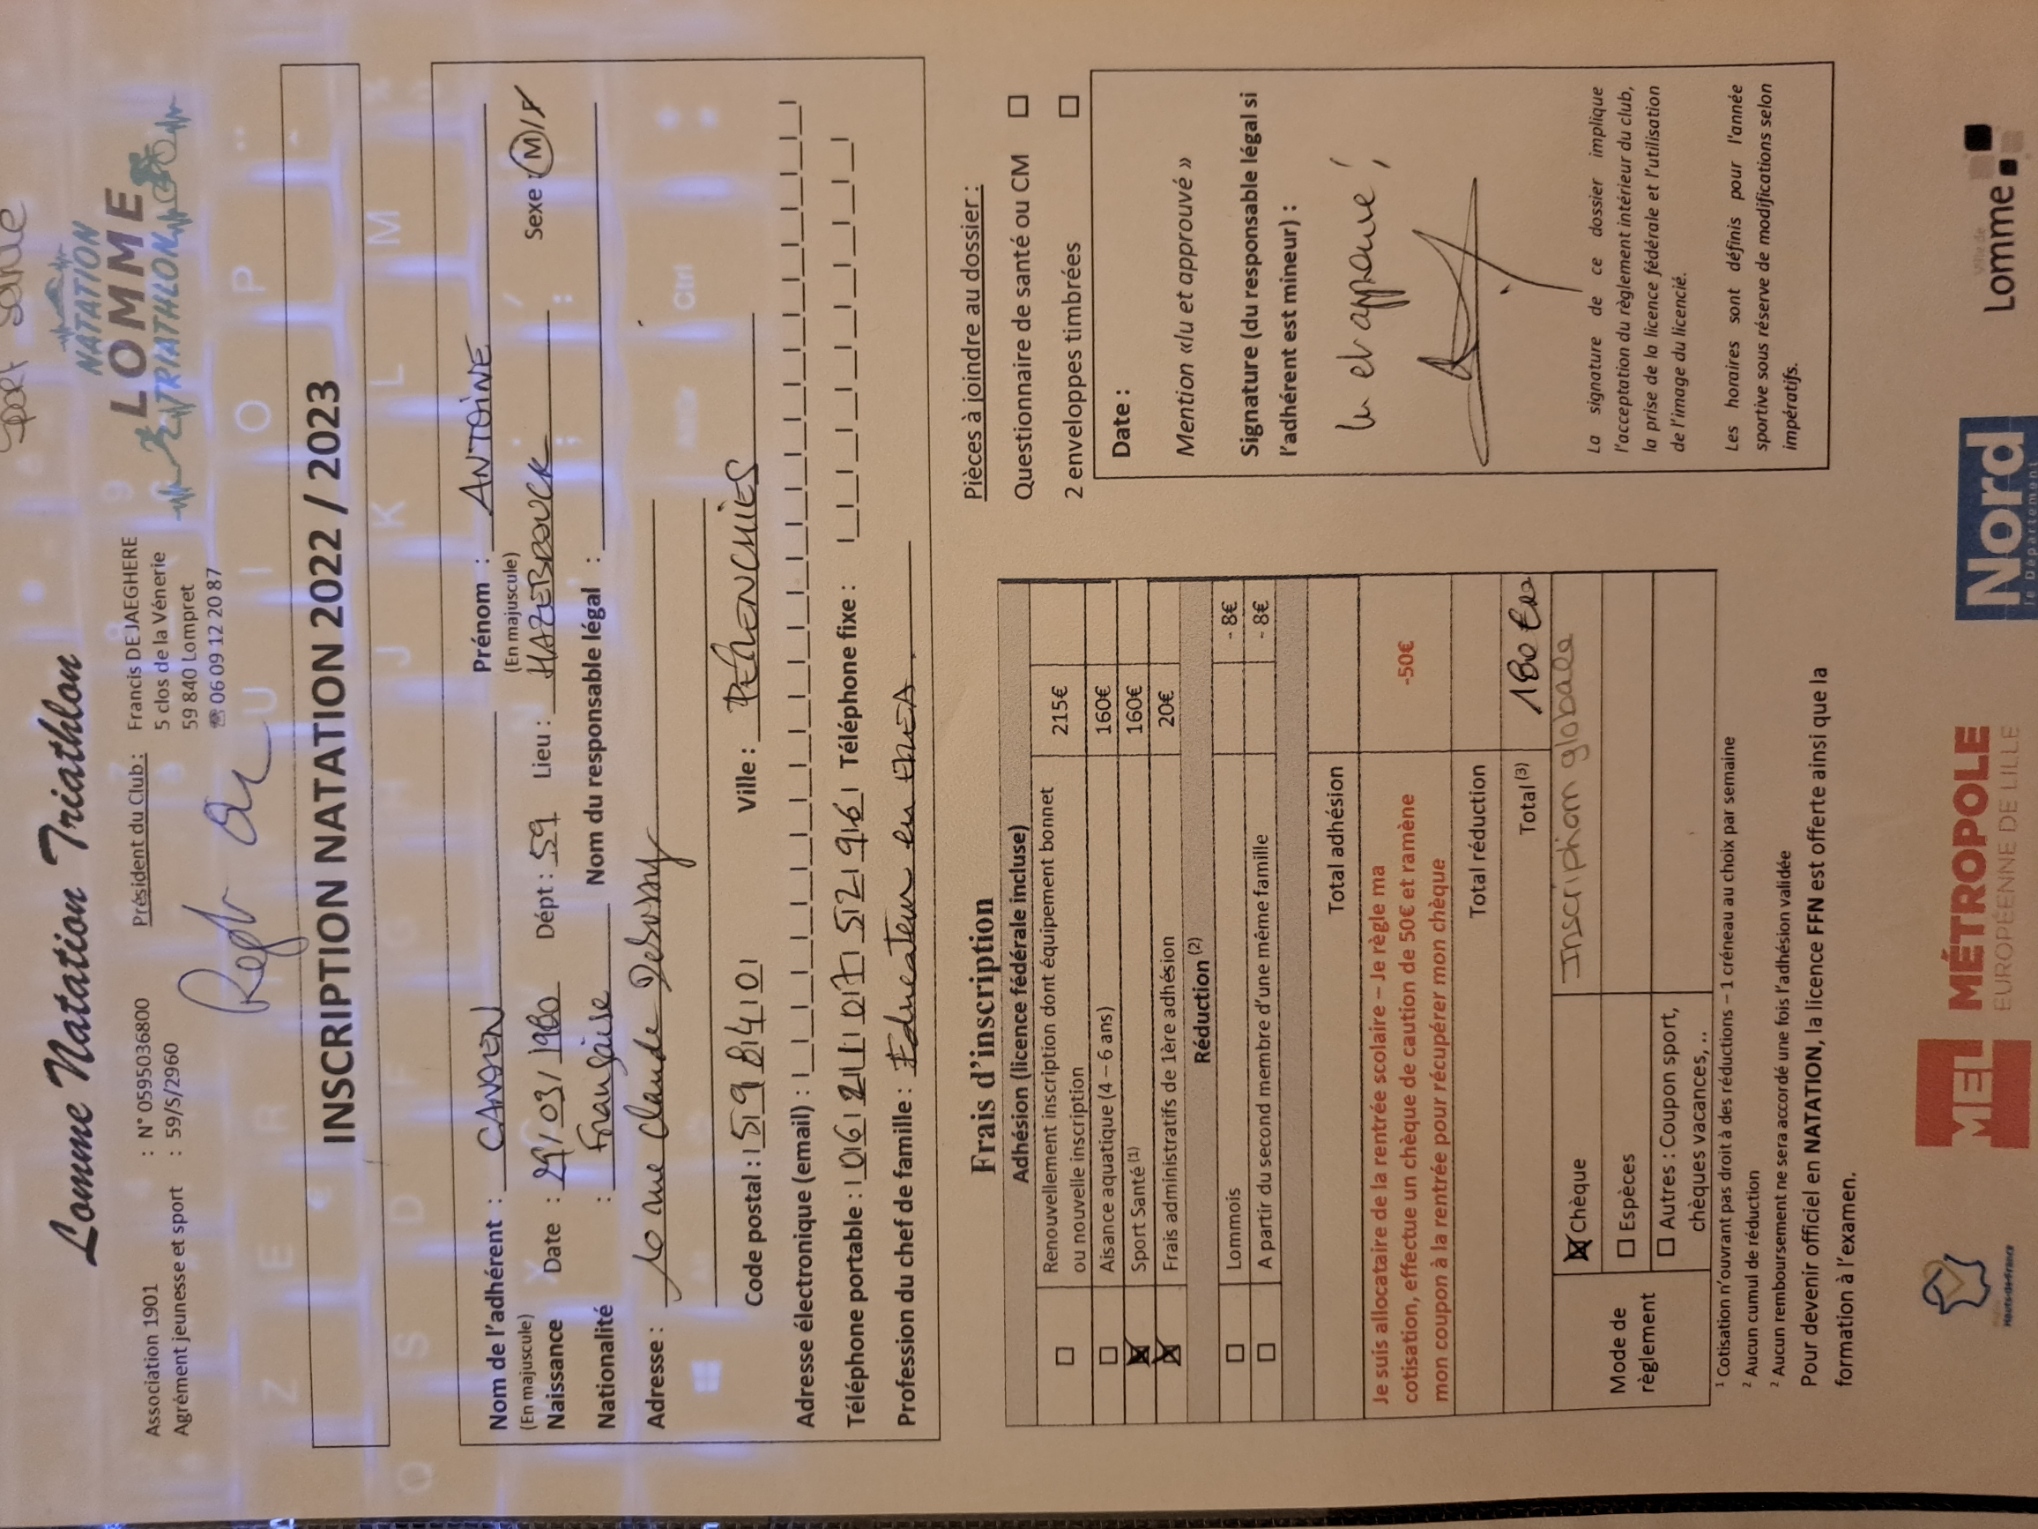 Sport santé
Lomme Natation Triathlon
NATATION
LOMME
TRIATHLON
Association 1901 : N° 0595036800
Agrément jeunesse et sport : 59/S/2960
Président du Club : Francis DEJAEGHERE
5 clos de la Vénerie
59 840 Lompret
☏ 06 09 12 20 87
INSCRIPTION NATATION 2022 / 2023
Nom de l'adhérent : Prénom : ANTOINE
(En majuscule) (En majuscule)
Naissance Date : 29/03/1980 Dépt : 59 Lieu : HAZEBROUCK Sexe : M/F
Nationalité : Française Nom du responsable légal :
Adresse : rue Claude
Code postal : 59840 Ville : PERENCHIES
Adresse électronique (email) :
Téléphone portable : 0621075296 Téléphone fixe :
Profession du chef de famille : Educateur en
Frais d'inscription
Adhésion (licence fédérale incluse)
☐ Renouvellement inscription dont équipement bonnet
ou nouvelle inscription 215€
☐ Aisance aquatique (4 – 6 ans) 160€
☒ Sport Santé (1) 160€
☒ Frais administratifs de 1ère adhésion 20€
Réduction (2)
☐ Lommois - 8€
☐ A partir du second membre d'une même famille - 8€
Total adhésion
Je suis allocataire de la rentrée scolaire – Je règle ma
cotisation, effectue un chèque de caution de 50€ et ramène
mon coupon à la rentrée pour récupérer mon chèque -50€
Total réduction
Total (3) 180
Mode de
règlement
☒ Chèque Inscription globale
☐ Espèces
☐ Autres : Coupon sport,
chèques vacances, ..
Pièces à joindre au dossier :
Questionnaire de santé ou CM ☐
2 enveloppes timbrées ☐
Date :
Mention «lu et approuvé »
Signature (du responsable légal si
l'adhérent est mineur) :
lu et approuvé
La signature de ce dossier implique
l'acceptation du règlement intérieur du club,
la prise de la licence fédérale et l'utilisation
de l'image du licencié.
Les horaires sont définis pour l'année
sportive sous réserve de modifications selon
impératifs.
1 Cotisation n'ouvrant pas droit à des réductions – 1 créneau au choix par semaine
2 Aucun cumul de réduction
2 Aucun remboursement ne sera accordé une fois l'adhésion validée
Pour devenir officiel en NATATION, la licence FFN est offerte ainsi que la
formation à l'examen.
Hauts-de-France
MEL MÉTROPOLE
EUROPÉENNE DE LILLE
Nord
le Département
Ville de
Lomme